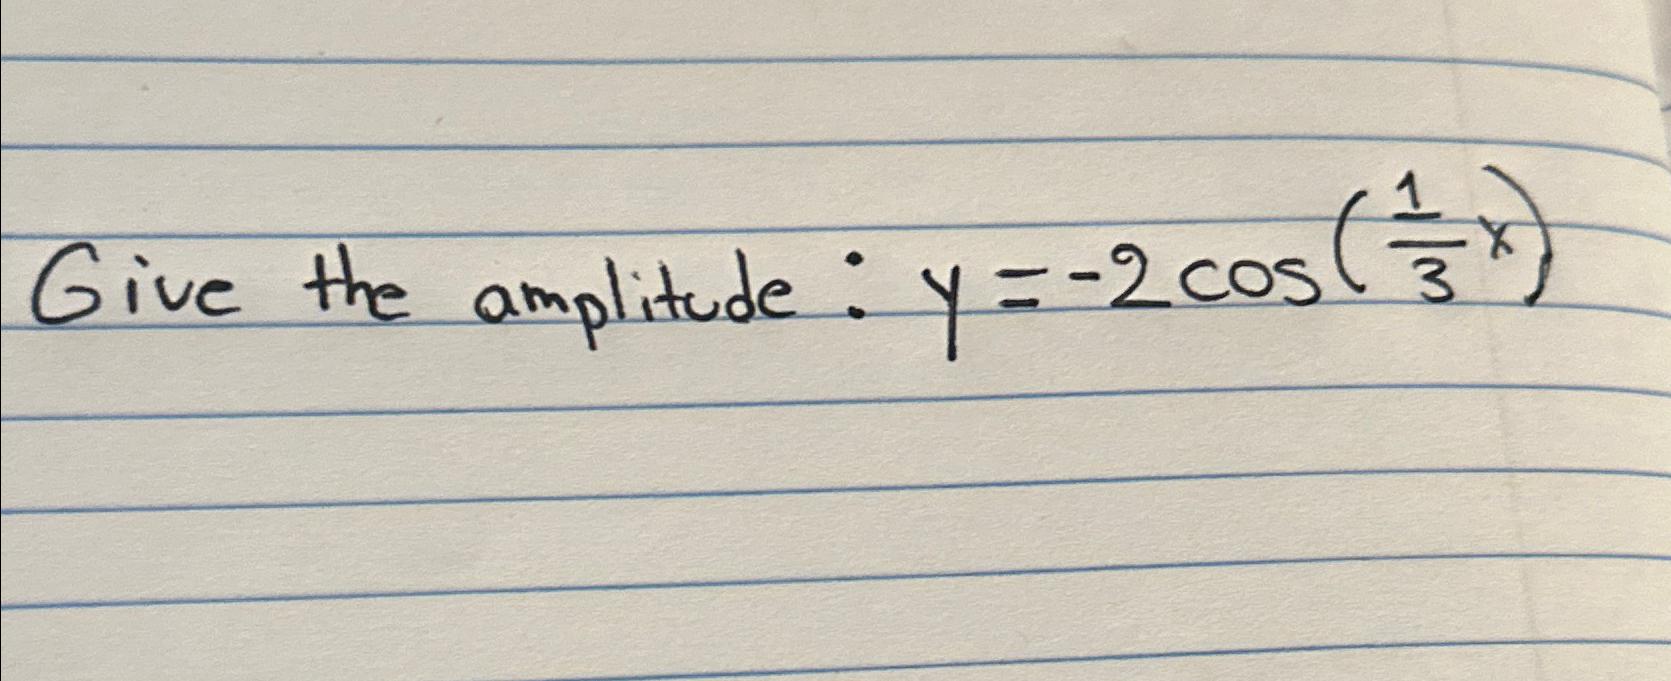 Give the amplitude : y = -2 cos (1/3 x)